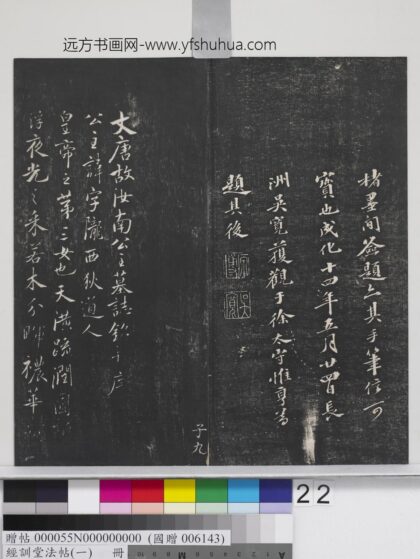 远方书画网-www.yfshuhua.com
楮墨间签题亦其手笔信可
寳也成化十四年五月廿四日長
洲吴寛獲觀于徐太常惟亨
題其後
大唐故汝南公主墓誌銘并序
公主諱字隴西狄道人
皇帝之第三女也天潢疏潤圓
浮夜光之采若木分暉穠華
子九
22
贈帖 000055N000000000 (國贈 006143)
經訓堂法帖(一) 冊